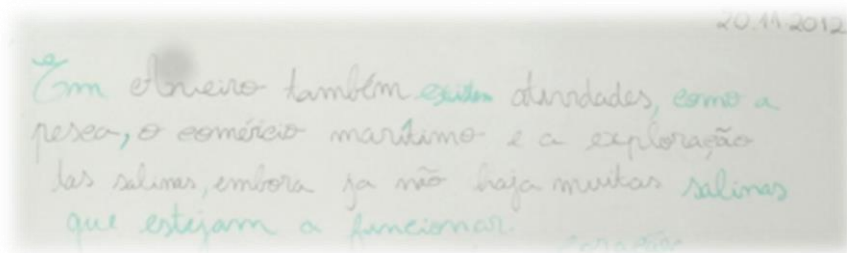 20.11.2012
Em Aveiro também existem atividades, como a
pesca, o comércio marítimo e a exploração
das salinas, embora ja não haja muitas salinas
que estejam a funcionar.